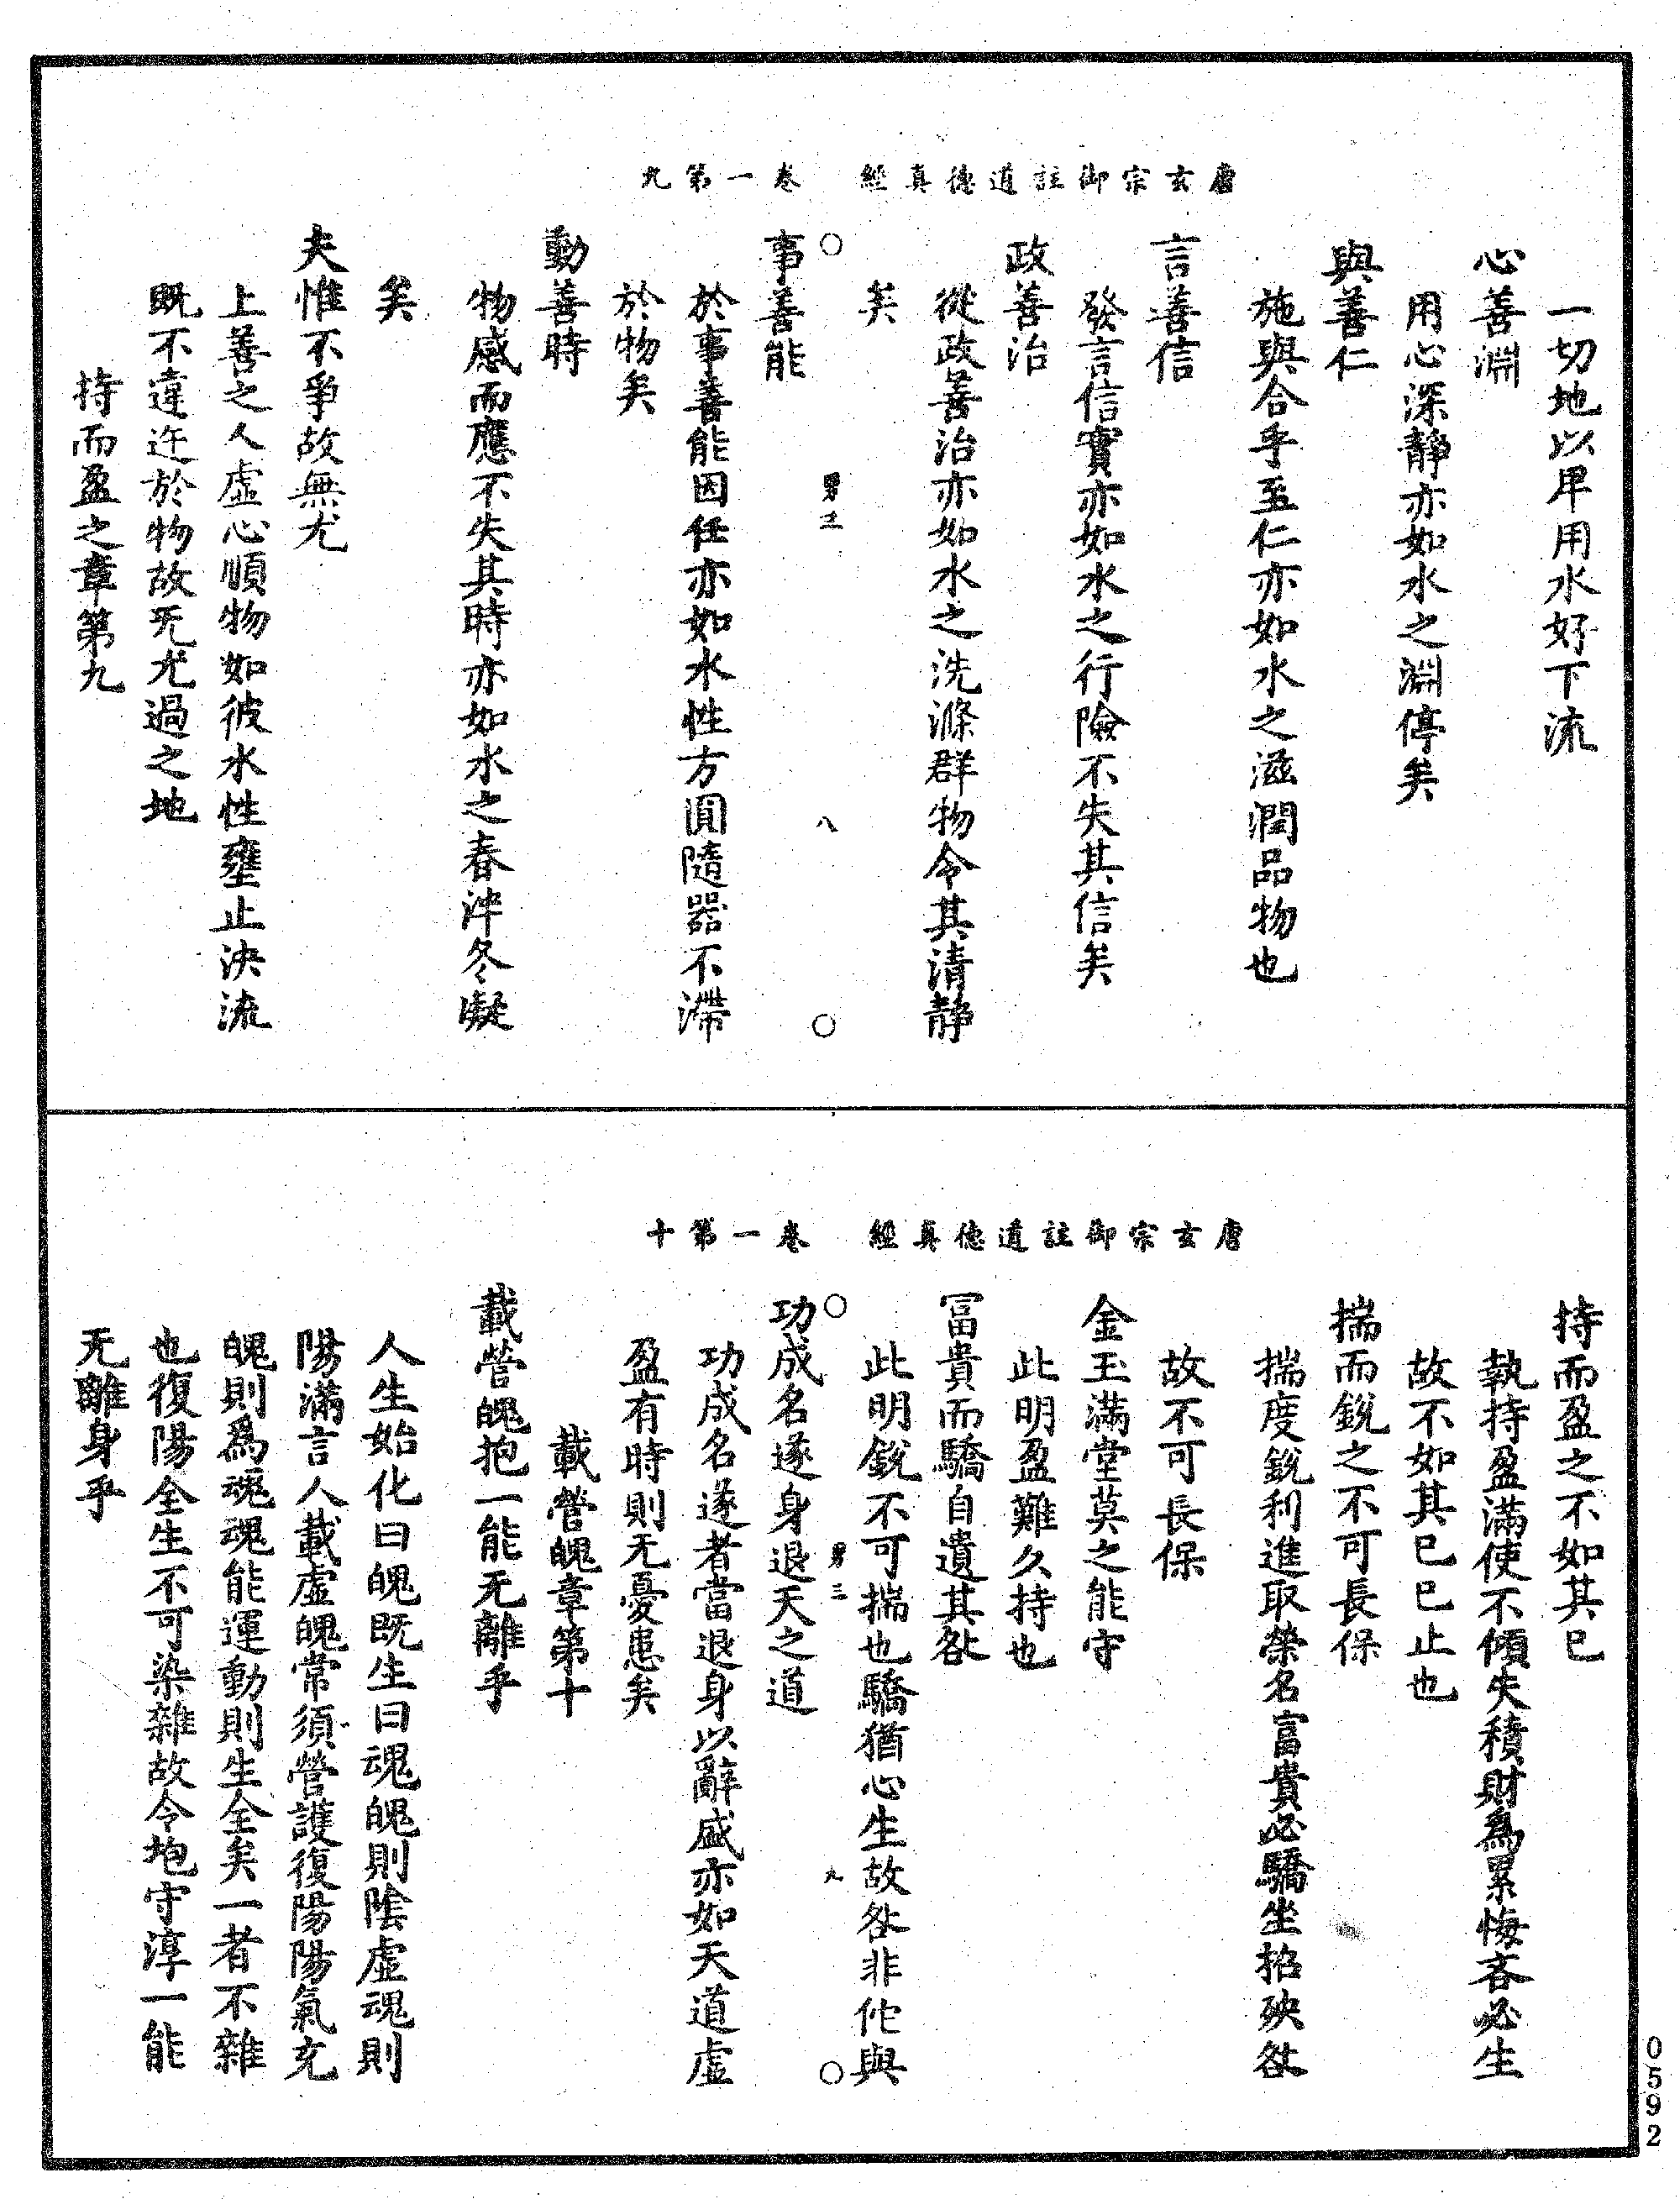 唐玄宗御註道德真經　卷一第九
一切地以卑用水好下流
心善淵
用心深靜亦如水之淵停矣
與善仁
施與合乎至仁亦如水之滋潤品物也
言善信
發言信實亦如水之行險不失其信矣
政善治
從政善治亦如水之洗滌群物令其清靜
矣
八
事善能
於事善能因任亦如水性方圓隨器不滯
於物矣
動善時
物感而應不失其時亦如水之春泮冬凝
矣
夫惟不爭故無尤
上善之人虛心順物如彼水性壅止決流
既不違迕於物故无尤過之地
持而盈之章第九
唐玄宗御註道德真經　卷一第十
持而盈之不如其已
執持盈滿使不傾失積財為累悔吝必生
故不如其已已止也
揣而銳之不可長保
揣度銳利進取榮名富貴必驕坐招殃咎
故不可長保
金玉滿堂莫之能守
此明盈難久持也
富貴而驕自遺其咎
此明銳不可揣也驕猶心生故咎非佗與
男三　九
功成名遂身退天之道
功成名遂者當退身以辭盛亦如天道虛
盈有時則无憂患矣
載營魄章第十
載營魄抱一能无離乎
人生始化曰魄既生曰魂魄則陰虛魂則
陽滿言人載虛魄常須營護復陽陽氣充
魄則為魂魂能運動則生全矣一者不雜
也復陽全生不可染雜故令抱守淳一能
无離身乎
0592